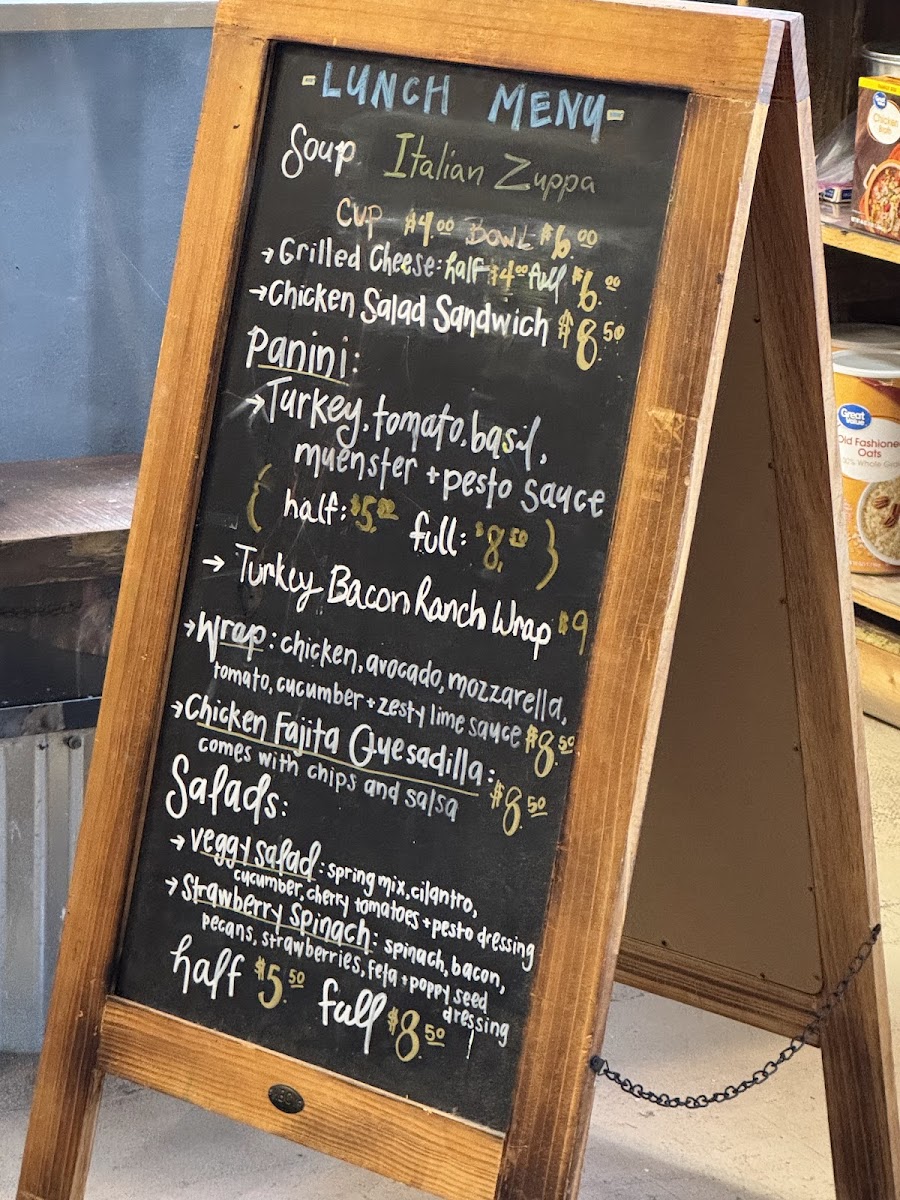 -LUNCH MENU-
Soup Italian Zuppa
CUP $4.00 BOWL $6.00
→Grilled Cheese: half $4.00 full $6.00
→Chicken Salad Sandwich $8.50
Panini:
→Turkey, tomato, basil,
muenster + pesto sauce
{ half: $5.50 full: $8.50 }
→ Turkey Bacon Ranch Wrap $9
→Wrap: chicken, avocado, mozzarella,
tomato, cucumber + zesty lime sauce $8.50
→Chicken Fajita Quesadilla:
comes with chips and salsa $8.50
Salads:
→ veggy salad: spring mix, cilantro,
cucumber, cherry tomatoes + pesto dressing
→ Strawberry Spinach: spinach, bacon,
pecans, strawberries, feta + poppy seed
dressing
half $5.50 full $8.50
Great Value
Chicken
Broth
Great Value
Old Fashione
Oats